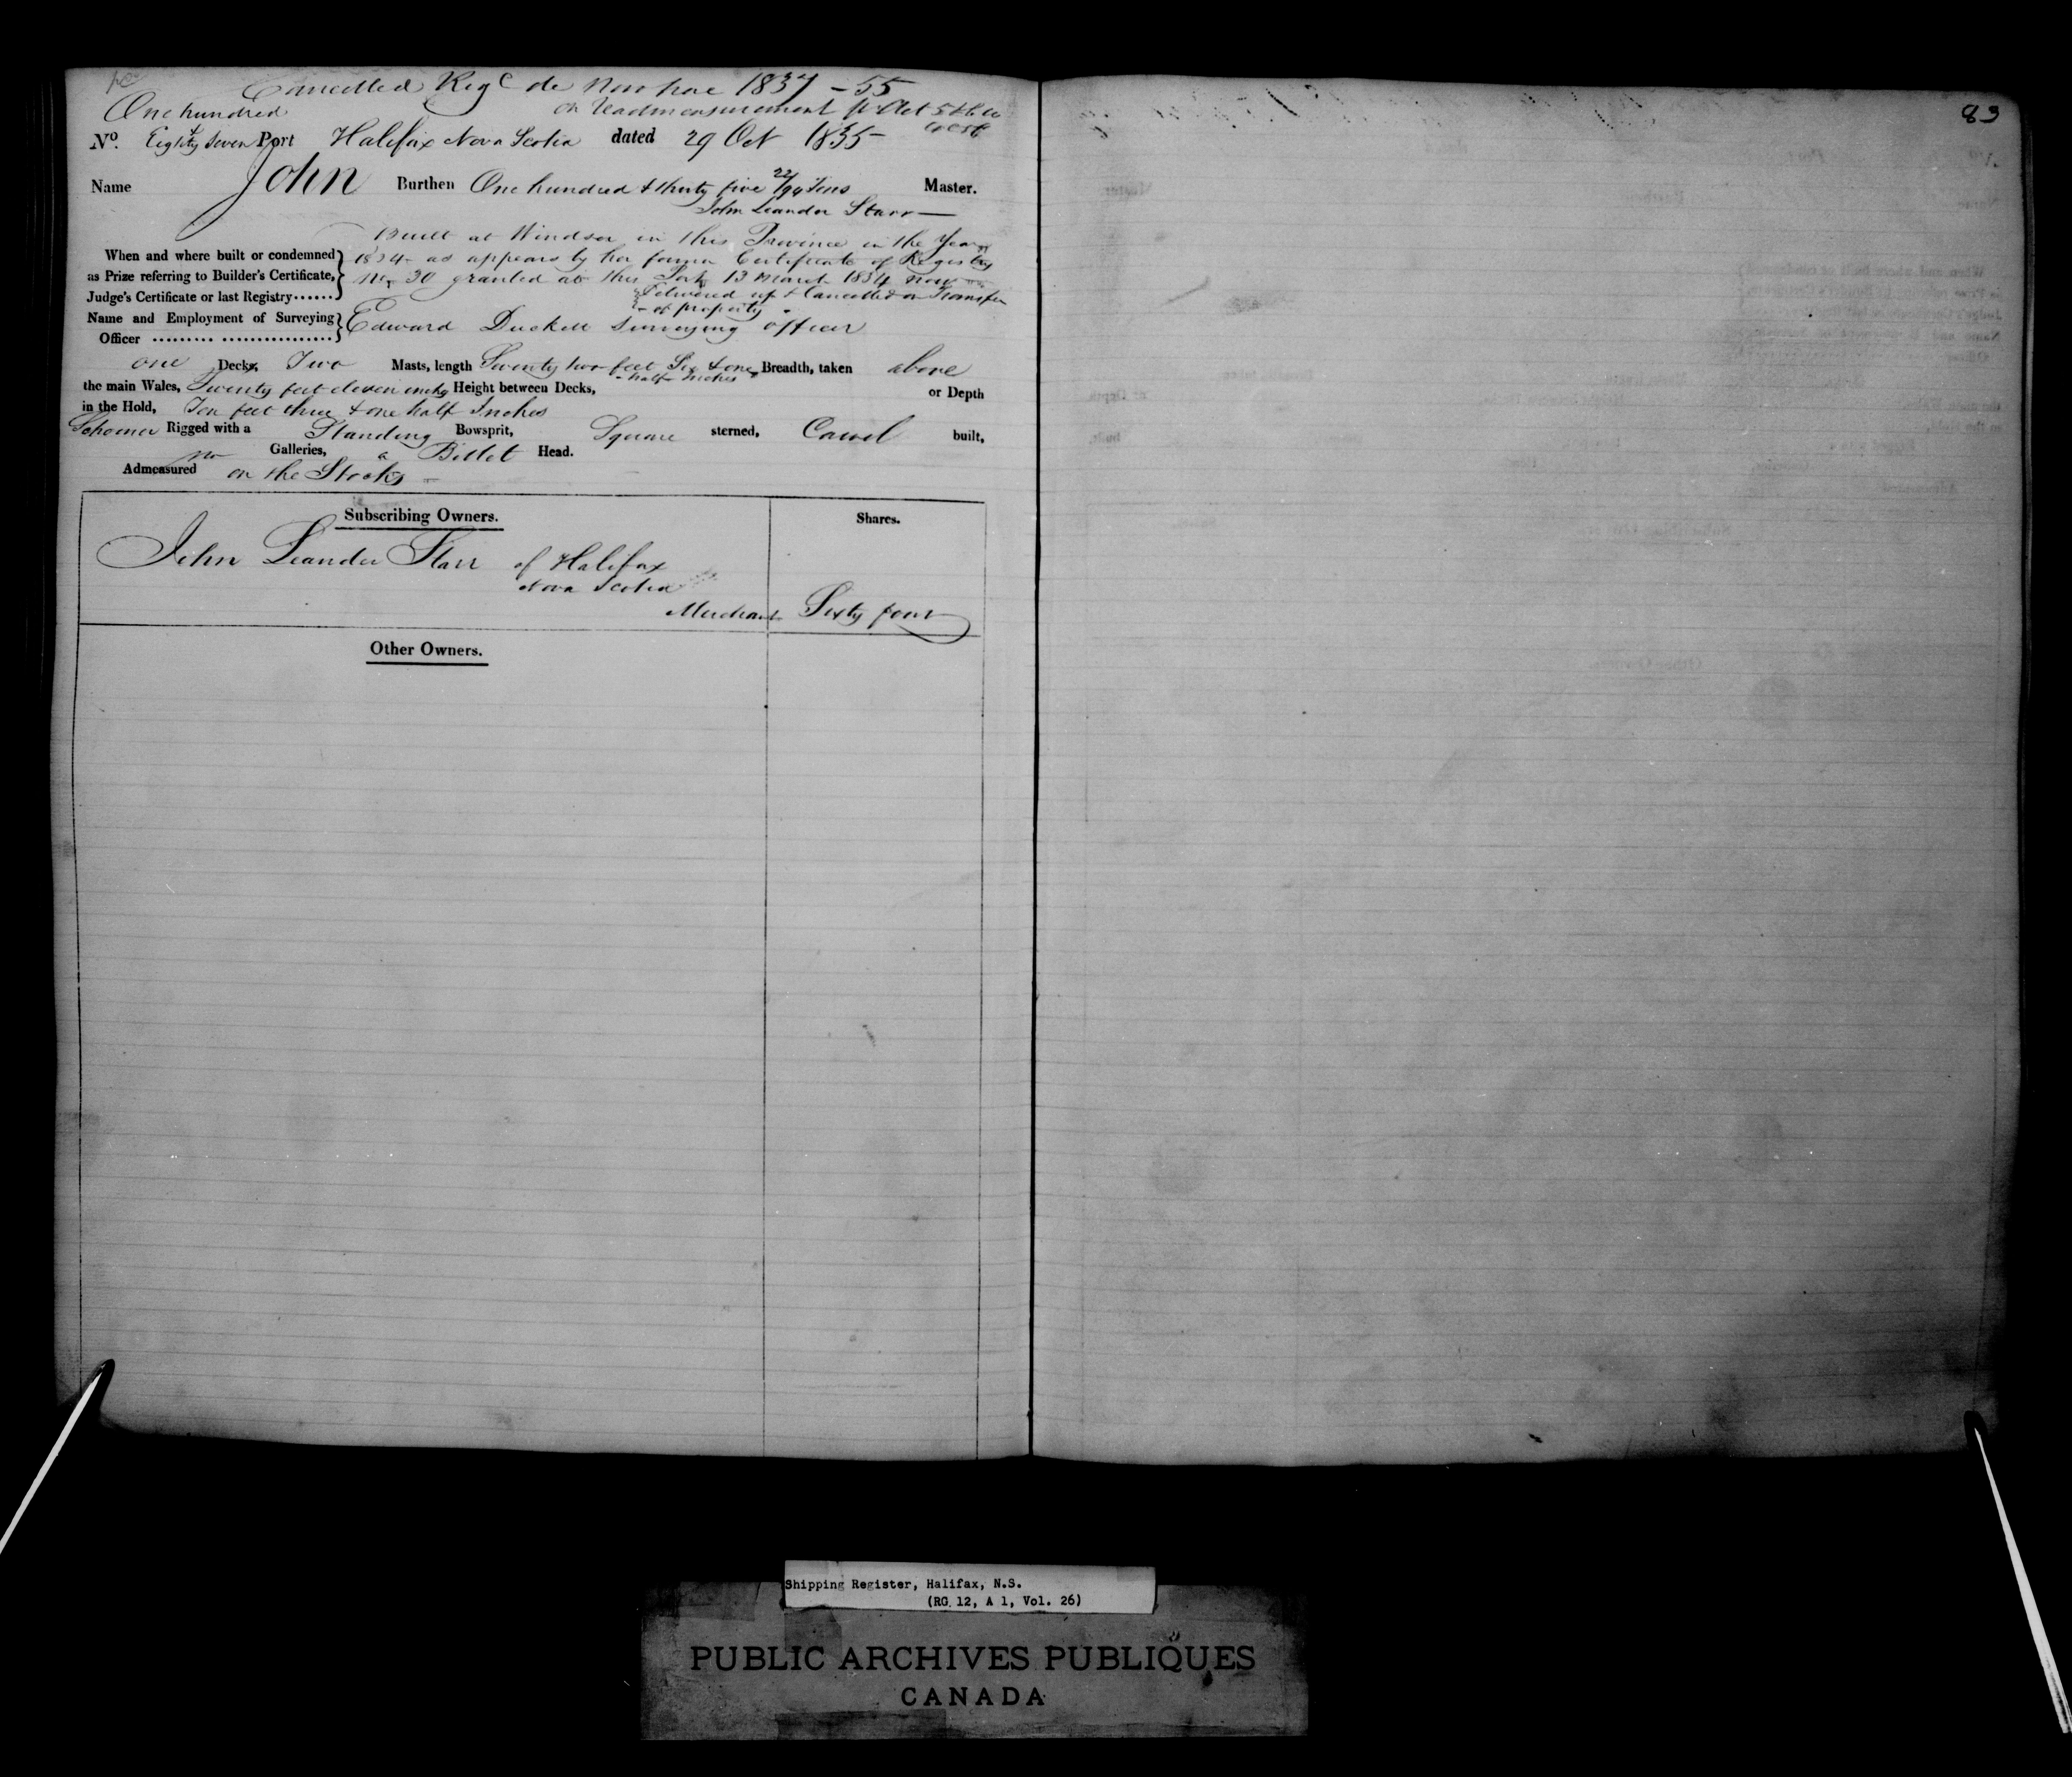 Cancelled Reg^d de Novo here 1837 - 55
One hundred on Readmeasurement pr Act 5 & 6 W
N^o. Eighty Seven Port Halifax Nova Scotia dated 29 Oct 1835
Name John Burthen One hundred & thirty five 22/94 Tons Master.
John Leander Starr
Built at Windsor in this Province in the Year
When and where built or condemned 1834 as appears by her former Certificate of Registry
as Prize referring to Builder's Certificate, No. 30 granted at this Port 13 March 1834 now
Judge's Certificate or last Registry...... Delivered up & Cancelled on Transfer
of property
Name and Employment of Surveying Edward Duckett Surveying officer
Officer ......... ................
one Decks, Two Masts, length Seventy two feet Six & one half Inches Breadth, taken above
the main Wales, Twenty feet eleven inchs Height between Decks, or Depth
in the Hold, Ten feet three & one half Inches
Schooner Rigged with a Standing Bowsprit, Square sterned, Carvel built,
no Galleries, a Billet Head.
Admeasured on the Stocks
Subscribing Owners. Shares.
John Leander Starr of Halifax
Nova Scotia
Merchant Sixty four
Other Owners.
83
Shipping Register, Halifax, N.S.
(RG 12, A 1, Vol. 26)
PUBLIC ARCHIVES PUBLIQUES
CANADA